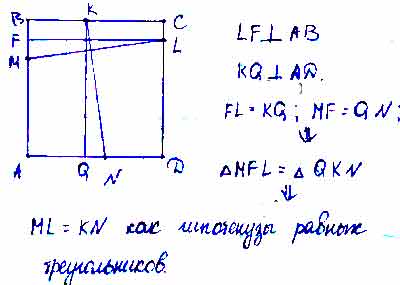 B K C
F L
M
A Q N D
LF ⊥ AB
KQ ⊥ AD.
FL = KQ; MF = QN;
⇓
△MFL = △QKN
⇓
ML = KN как гипотенузы равных
треугольников.